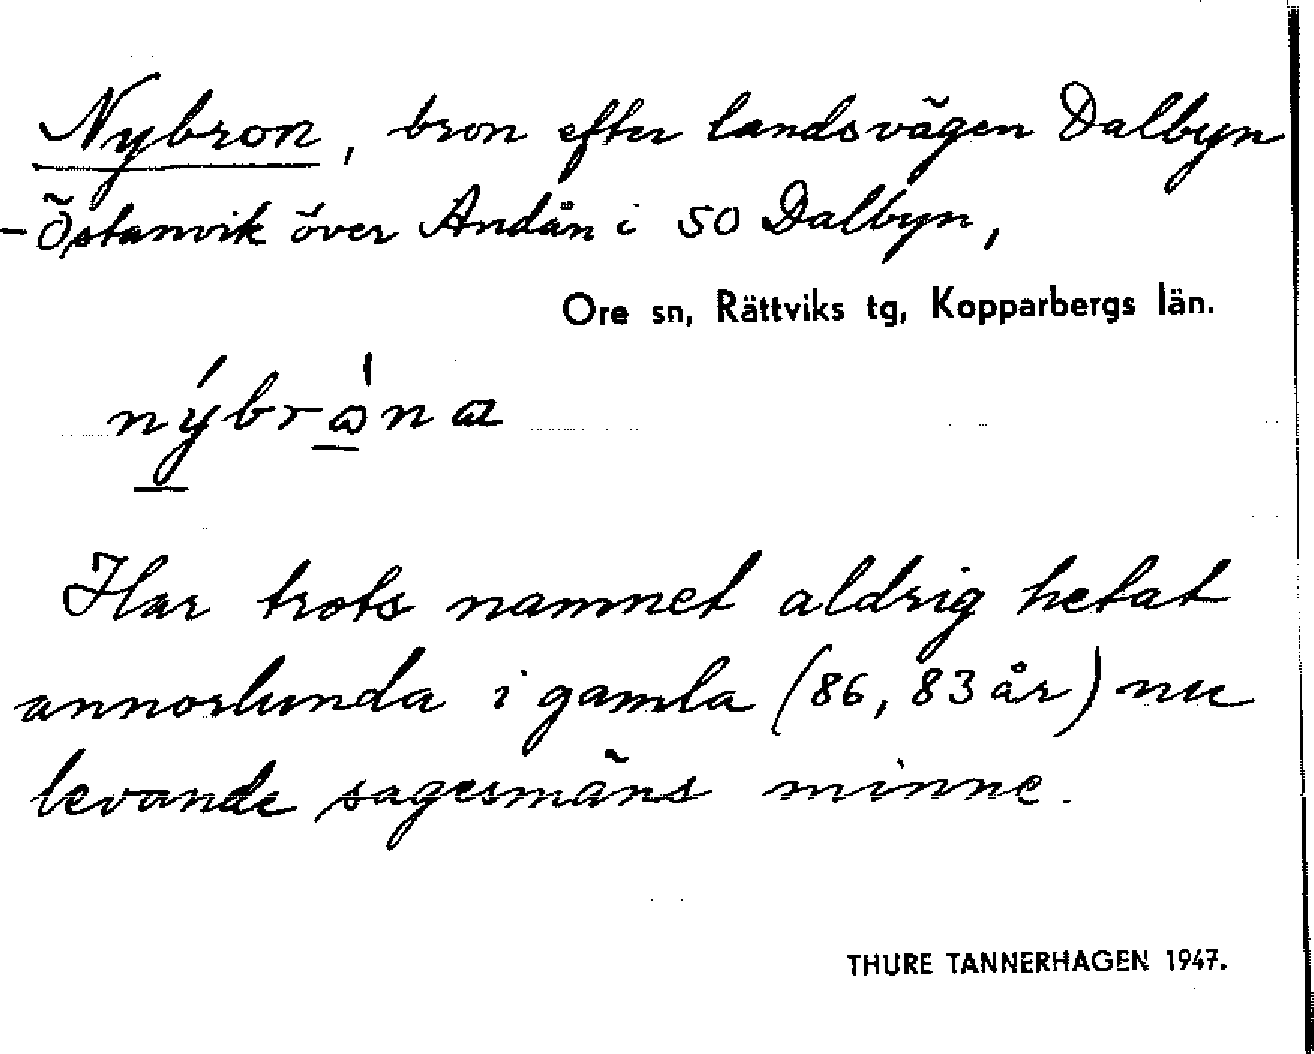 Nybron, bron efter landsvägen Dalbyn
- Östanvik över Andån i SO Dalbyn,
Ore sn, Rättviks tg, Kopparbergs län.
Har trots namnet aldrig hetat
annorlunda i gamla (86, 83 år) nu
levande sagesmäns minne.
THURE TANNERHAGEN 1947.